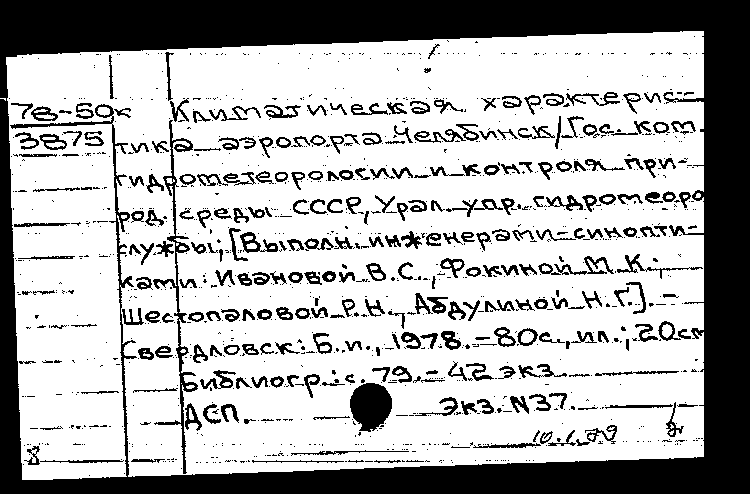 78-50к Климатическая характерис-
3875 тика аэропорта Челябинск/Гос. ком.
гидрометеорологии и контроля при-
род. среды СССР, Урал. упр. гидромеоро
службы; [Выполн. инженерами-синопти-
ками: Ивановой В.С., Фокиной М.К.,
Шестопаловой Р.Н., Абдулиной Н.Г.]. -
Свердловск: Б.и., 1978. - 80с., ил.; 20см
Библиогр.: с. 79. - 42 экз.
ДСП. Экз. N37.
8